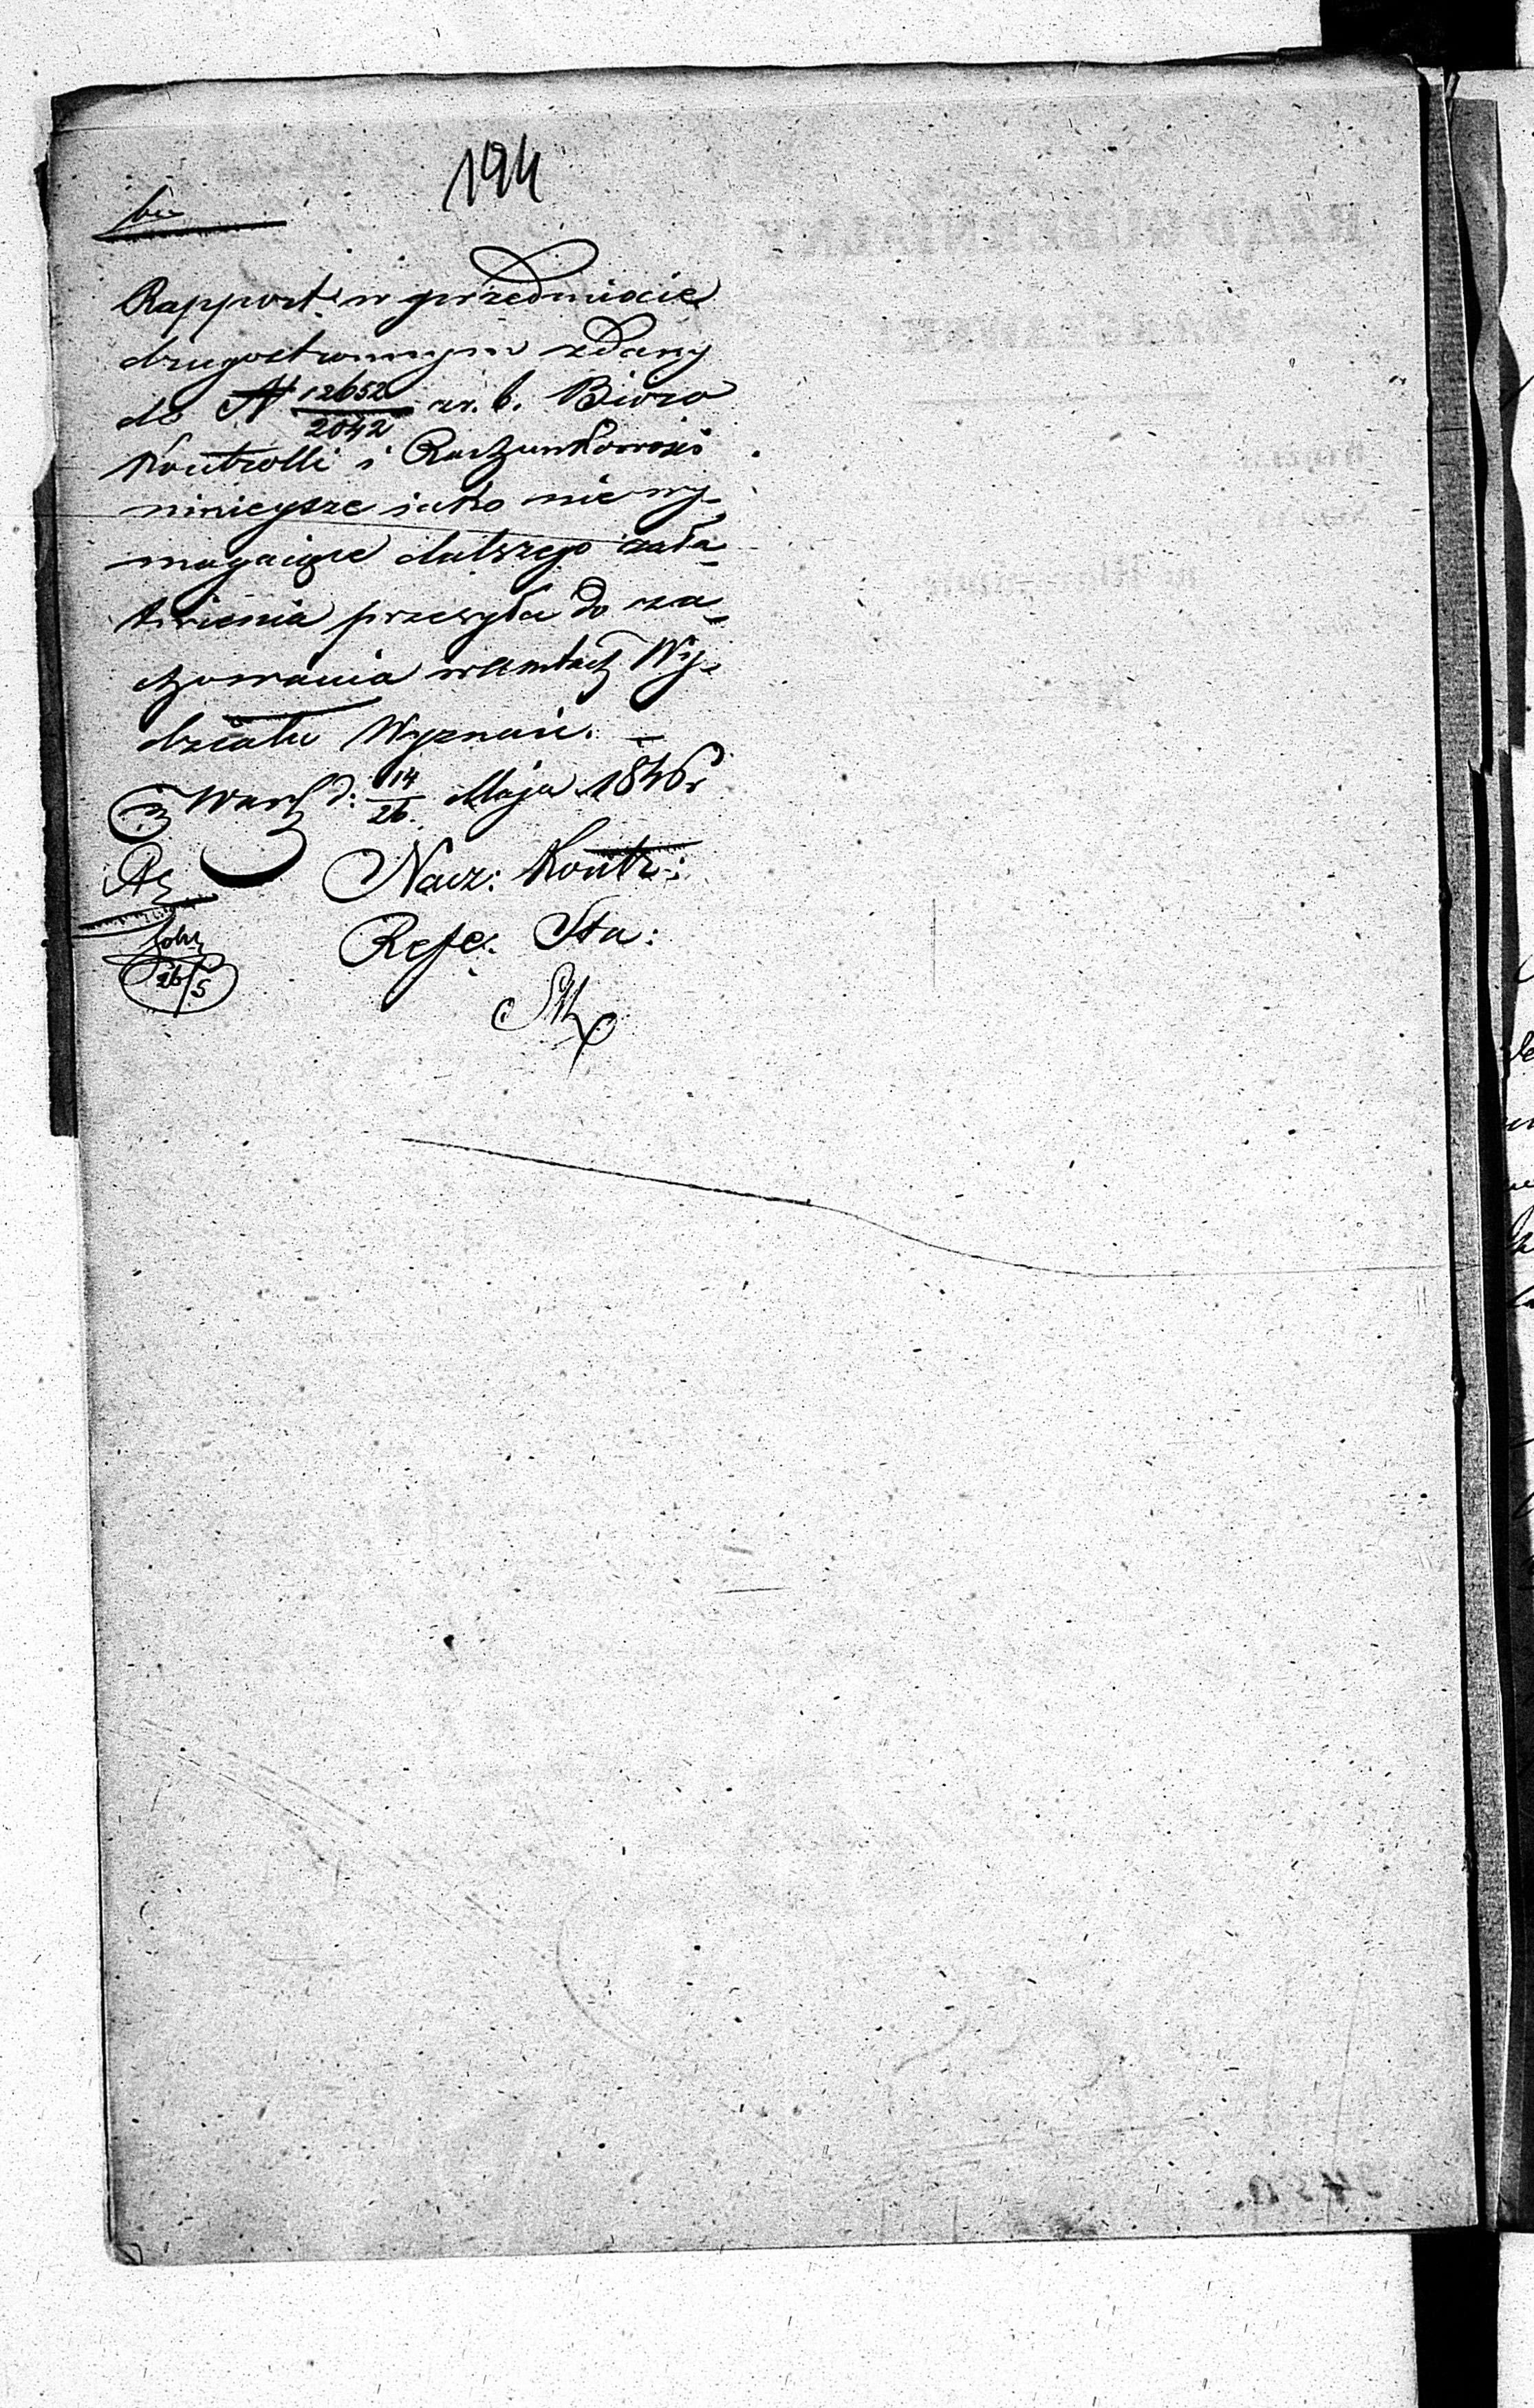 194
Rapport w przedmiocie
drugostronnym zdany
do N 12652/2042 z r. b. Bióro
Kontrolli i Rachunkowości
ninieysze iako nie wy-
magaiące dalszego zała-
twienia przesyła do za-
chowania w aktach Wy-
działu Wyznań. —
w Warsz d: 14/26 Maja 1846 r
Nacz: Kontr:
Refe. Sta:
26/5